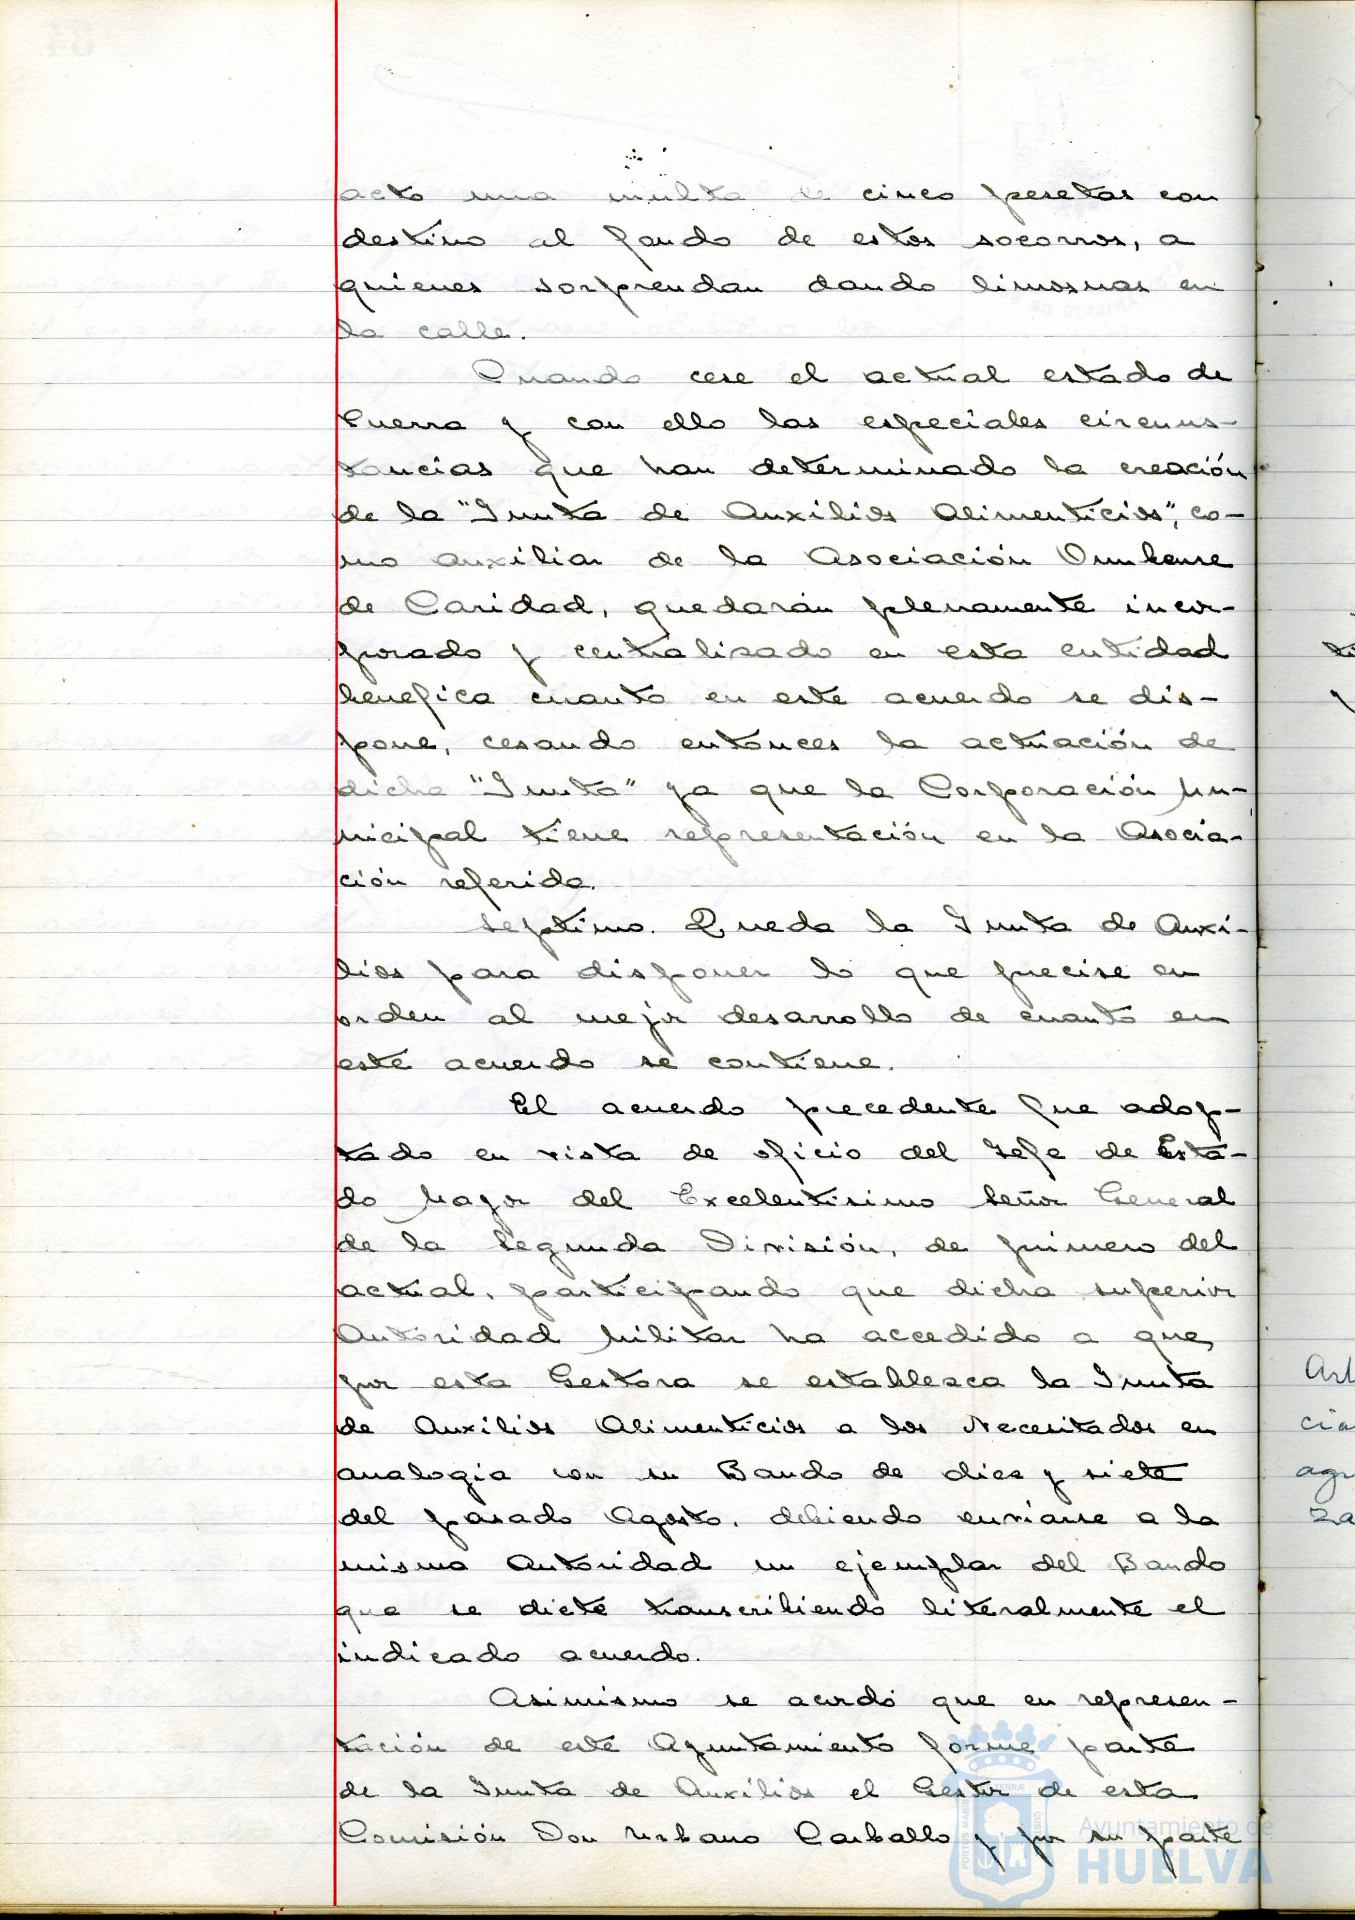 acto una multa de cinco pesetas con
destino al fondo de estos socorros, a
quienes sorprendan dando limosnas en
la calle.
Cuando cese el actual estado de
Guerra y con ello las especiales circuns-
tancias que han determinado la creación
de la "Junta de Auxilios Alimenticios", co-
mo auxiliar de la Asociación Onubense
de Caridad, quedarán plenamente incor-
porado y centralizado en esta entidad
benefica cuanto en este acuerdo se dis-
pone, cesando entonces la actuación de
dicha "Junta" ya que la Corporación Mu-
nicipal tiene representación en la Asocia-
ción referida.
Septimo. Queda la Junta de Auxi-
lios para disponer lo que precise en
orden al mejor desarrollo de cuanto en
este acuerdo se contiene.
El acuerdo precedente fue adop-
tado en vista de oficio del Jefe de Esta-
do Mayor del Excelentisimo Señor General
de la Segunda División, de primero del
actual, participando que dicha superior
Autoridad Militar ha accedido a que
por esta Gestora se establezca la Junta
de Auxilios Alimenticios a los Necesitados en
analogia con su Bando de diez y siete
del pasado Agosto, debiendo enviarse a la
misma Autoridad un ejemplar del Bando
que se dicte transcribiendo literalmente el
indicado acuerdo.
Asimismo se acordó que en represen-
tación de este Ayuntamiento forme parte
de la Junta de Auxilios el Gestor de esta
Comisión Don Urbano Carballo y por su parte
Ayuntamiento de
HUELVA